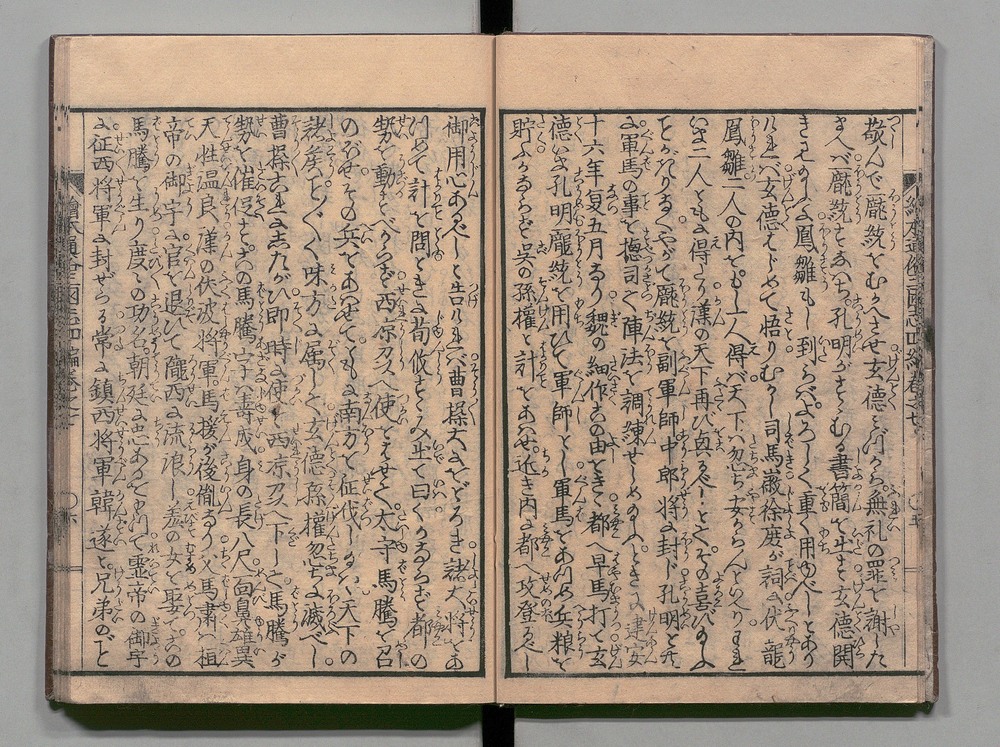 敬んで龐統をむかへさせ玄徳ミづから無礼の罪を謝した
まへバ龐統すなハち孔明がすゝむる書簡を出す玄徳開
きミたまふに鳳雛もし到らバよろしく重く用ゆべしとあり
けれバ玄徳はじめて悟りむかし司馬徽徐庶が詞に伏龍
鳳雛二人の内をもし一人得バ天下ハ忽ち安からんといへりわれ
いま二人ともに得たり漢の天下再び興るべしとてその喜びなのめ
ならずやがて龐統を副軍師中郎将に封じ孔明と共
に軍馬の事を捴司て陣法を調練せしめたまふときに建安
十六年夏五月なり魏の細作この由をきゝ都へ早馬打て玄
徳いま孔明龐統を用ひて軍師とし軍馬をあつめ兵粮を
貯ふかならず呉の孫權と計をあハせ近き内に都へ攻登るべし
御用心あるべしと告けれバ曹操大におどろき諸大将をあ
つめて計を問ときに荀攸すゝみ出て曰くかならず都の
勢を動すべからず西凉州へ使をはせて太守馬騰を召
のぼせその兵をあハせてともに南方を征伐したまハヾ天下の
諸矦ことごとく味方に属して玄徳孫權忽ちに滅べし
曹操これにしたがひ即時に使を西凉州へ下して馬騰が
勢を催促すこの馬騰字ハ壽成身の長八尺面鼻雄異
天性温良漢の伏波将軍馬援が後胤なり父馬肅ハ桓
帝の御宇に官を退ひて隴西に流浪し羌の女を娶てこの
馬騰を生り度々の功名朝廷に忠ありて霊帝の御宇
に征西将軍に封ぜらる常に鎮西将軍韓遂と兄弟のごと